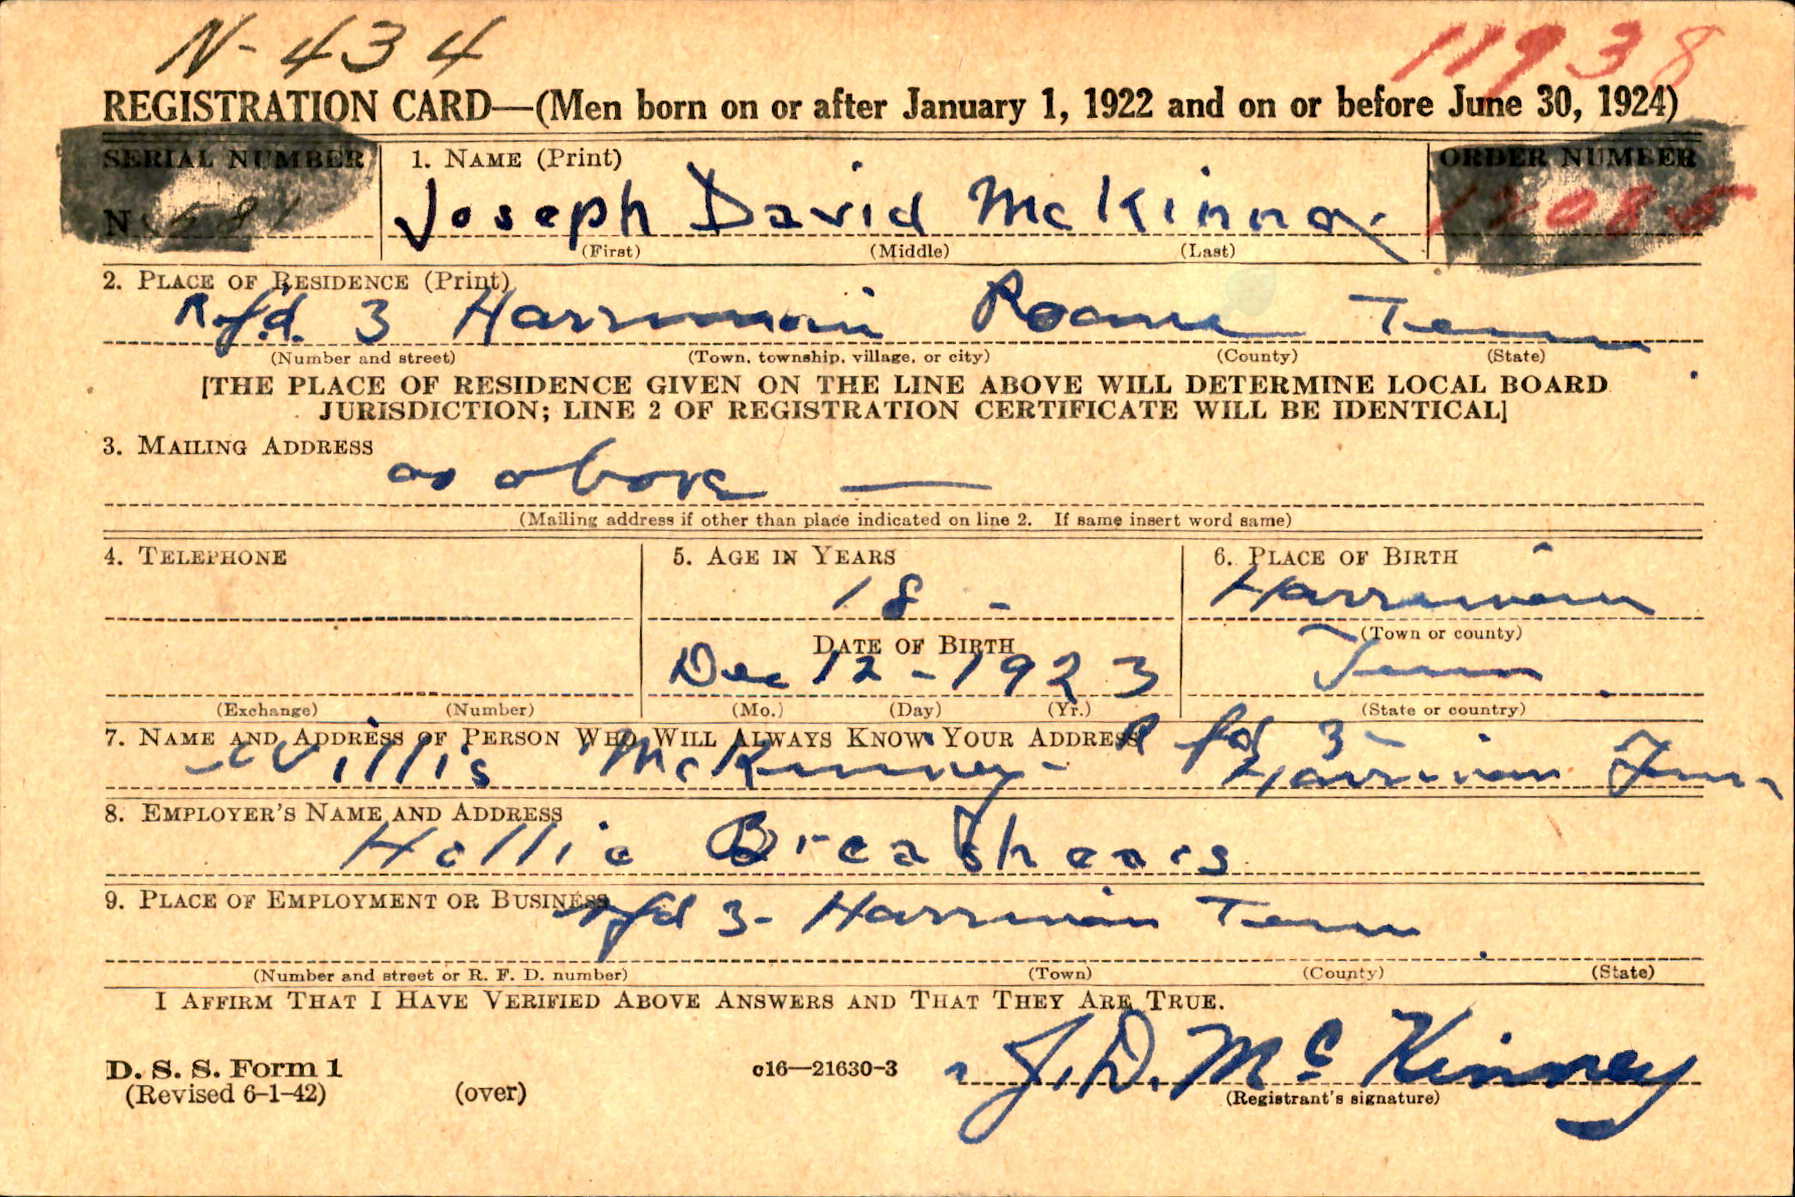 N-434 11938
REGISTRATION CARD—(Men born on or after January 1, 1922 and on or before June 30, 1924)
SERIAL NUMBER 1. NAME (Print) ORDER NUMBER
N Joseph David McKinney 12085
(First) (Middle) (Last)
2. PLACE OF RESIDENCE (Print)
Rfd. 3 Harriman Roane Tenn
(Number and street) (Town, township, village, or city) (County) (State)
[THE PLACE OF RESIDENCE GIVEN ON THE LINE ABOVE WILL DETERMINE LOCAL BOARD
JURISDICTION; LINE 2 OF REGISTRATION CERTIFICATE WILL BE IDENTICAL]
3. MAILING ADDRESS
as above —
(Mailing address if other than place indicated on line 2. If same insert word same)
4. TELEPHONE 5. AGE IN YEARS 6. PLACE OF BIRTH
18 - Harriman
DATE OF BIRTH (Town or county)
Dec 12 - 1923 Tenn
(Exchange) (Number) (Mo.) (Day) (Yr.) (State or country)
7. NAME AND ADDRESS OF PERSON WHO WILL ALWAYS KNOW YOUR ADDRESS
Willis McKinney - Rfd 3 - Harriman Tenn
8. EMPLOYER'S NAME AND ADDRESS
Hollie Breashears
9. PLACE OF EMPLOYMENT OR BUSINESS
Rfd 3 - Harriman Tenn
(Number and street or R. F. D. number) (Town) (County) (State)
I AFFIRM THAT I HAVE VERIFIED ABOVE ANSWERS AND THAT THEY ARE TRUE.
J. D. McKinney
D. S. S. Form 1 c16—21630-3
(Revised 6-1-42) (over) (Registrant's signature)